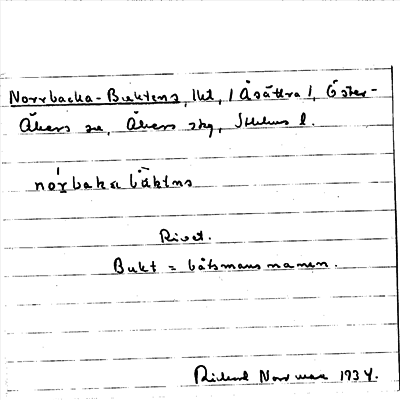 Norrbacka-Buktens, lht, / Åsättra /, Öster-
Åkers sn, Åkers skg, Sthlms l.
nórbaka
Rivet.
Bukt = båtsmansnamn.
Rickard Norrman 1934.